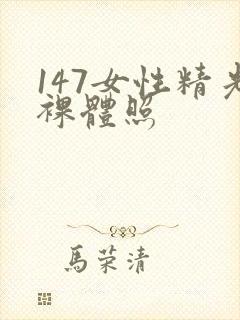 147女性精光
裸體照
馬荣清